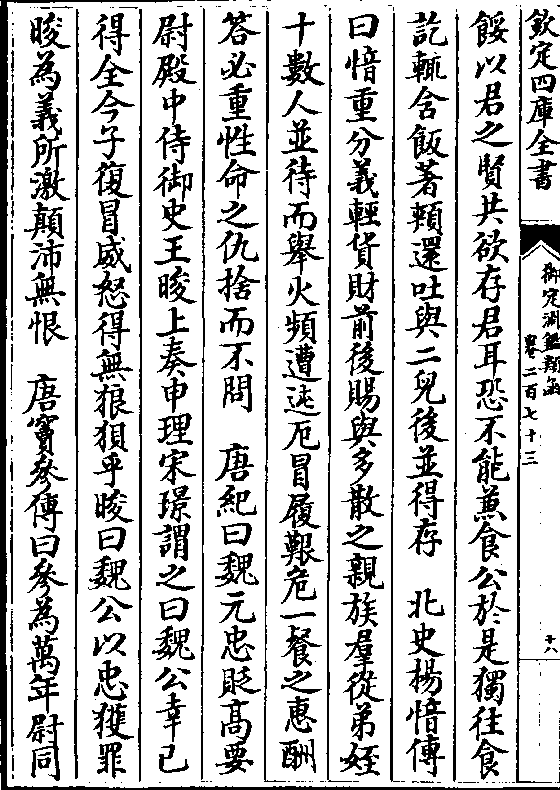 欽定四庫全書
御定淵鑑類函
卷二百七十三
十六
餒以君之賢共欲存君耳恐不能兼食公於是獨往食
訖輒含飯著頰還吐與二兒後並得存　北史楊愔傳
曰愔重分義輕貨財前後賜與多散之親族羣從弟姪
十數人並待而舉火頻遭迍厄冒履艱危一餐之惠酬
答必重性命之仇捨而不問　唐紀曰魏元忠貶高要
尉殿中侍御史王晙上奏申理宋璟謂之曰魏公幸已
得全今子復冒威怒得無狼狽乎晙曰魏公以忠獲罪
晙為義所激顛沛無恨　唐竇參傳曰參為萬年尉同